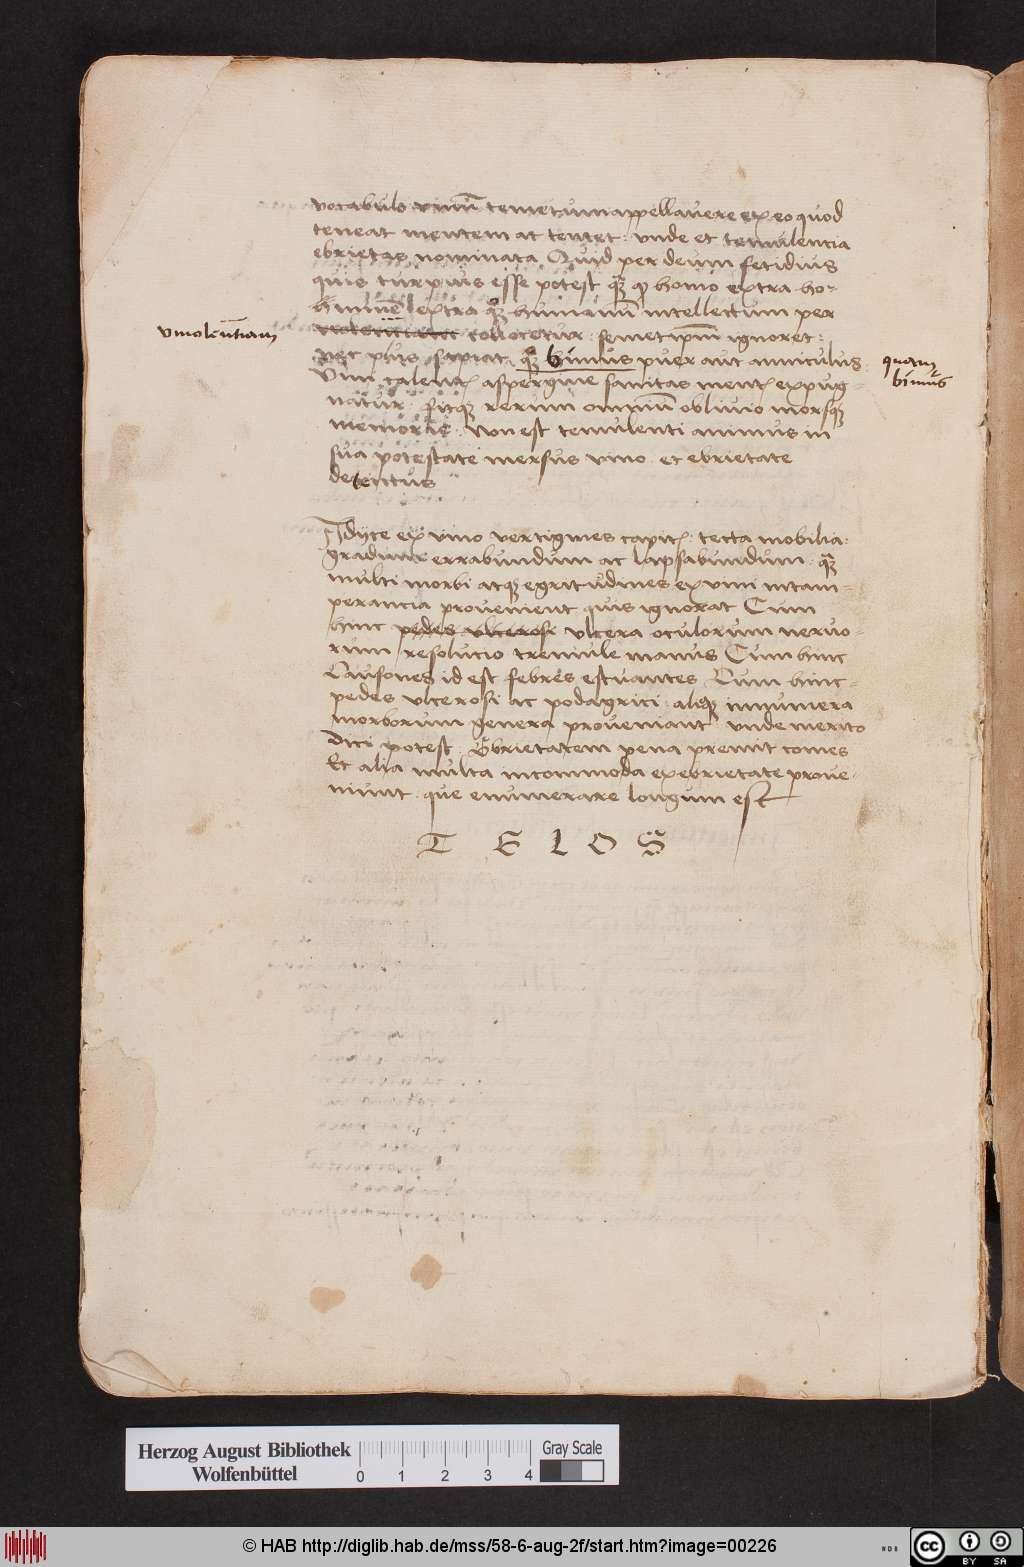 vocabulo vinū temetum appellavere ex eo quod
teneat mentem ac temtet : unde et temulencia
ebrietas nominata Quid per deum fetidius
quis turpius esse potest qȝ qp homo extra ho-
minē extra qȝ humanū intellectum per
vinolentiam
collocetur : semetipm̄ ignoret :
nec plus sapiat qȝ bimus puer aut anniculus
quam bimus
Vini calentꝭ aspergine sanitas mentꝭ expug-
natur : fitqȝ rerum omniū oblivio morsqȝ
memorie . Non est temulenti animus in
sua potestate mersus vino et ebrietate
detentus
Adijce ex vino vertigines capitꝭ : tecta mobilia :
gradum errabundum ac lapsabundum : qȝ
multi morbi atqȝ egritudines ex vini intam-
perancia provenient quis ignorat Cum
hinc pedes ulcerosi ulcera oculorum nervo-
rum resolucio tremule manus Cum hinc
Causones id est febres estuantes Cum hinc-
pedes ulcerosi ac podagrici : aliqȝ innumera
morborum genera proveniant : unde merito
dici potest . Ebrietatem pena premit comes
Et alia multa incommoda ex ebrietate prove-
niunt . que enumerare longum est
T E L O S
Herzog August Bibliothek
Wolfenbüttel
0 1 2 3 4
Gray Scale
© HAB http://diglib.hab.de/mss/58-6-aug-2f/start.htm?image=00226
cc BY SA